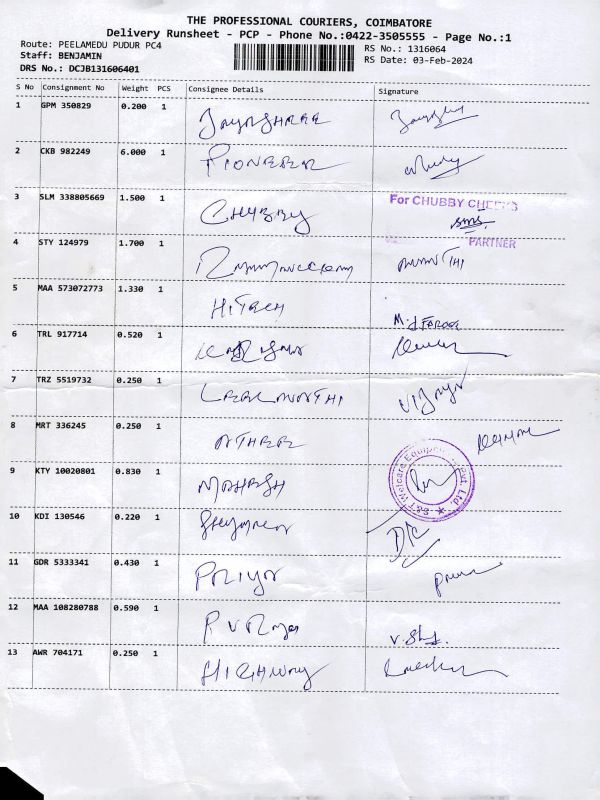 THE PROFESSIONAL COURIERS, COIMBATORE
Delivery Runsheet - PCP - Phone No.:0422-3505555 - Page No.:1
Route: PEELAMEDU PUDUR PC4
RS No.: 1316064
Staff: BENJAMIN
RS Date: 03-Feb-2024
DRS No.: DCJB131606401
S No Consignment No Weight PCS Consignee Details Signature
1 GPM 350829 0.200 1 JAYASHREE
2 CKB 982249 6.000 1 PIONEER
3 SLM 338805669 1.500 1 CHUBBY For CHUBBY CHEEKS
PARTNER
4 STY 124979 1.700 1
5 MAA 573072773 1.330 1 HITECH M.d FAROOK
6 TRL 917714 0.520 1
7 TRZ 5519732 0.250 1 VIJAYA
8 MRT 336245 0.250 1 ATHREE
9 KTY 10020801 0.830 1 MAHESH S&T Welcare Equipments Pvt. Ltd.
10 KDI 130546 0.220 1 D/C
11 GDR 5333341 0.430 1 PRIYA
12 MAA 108280788 0.590 1
13 AWR 704171 0.250 1 HIGHWAY